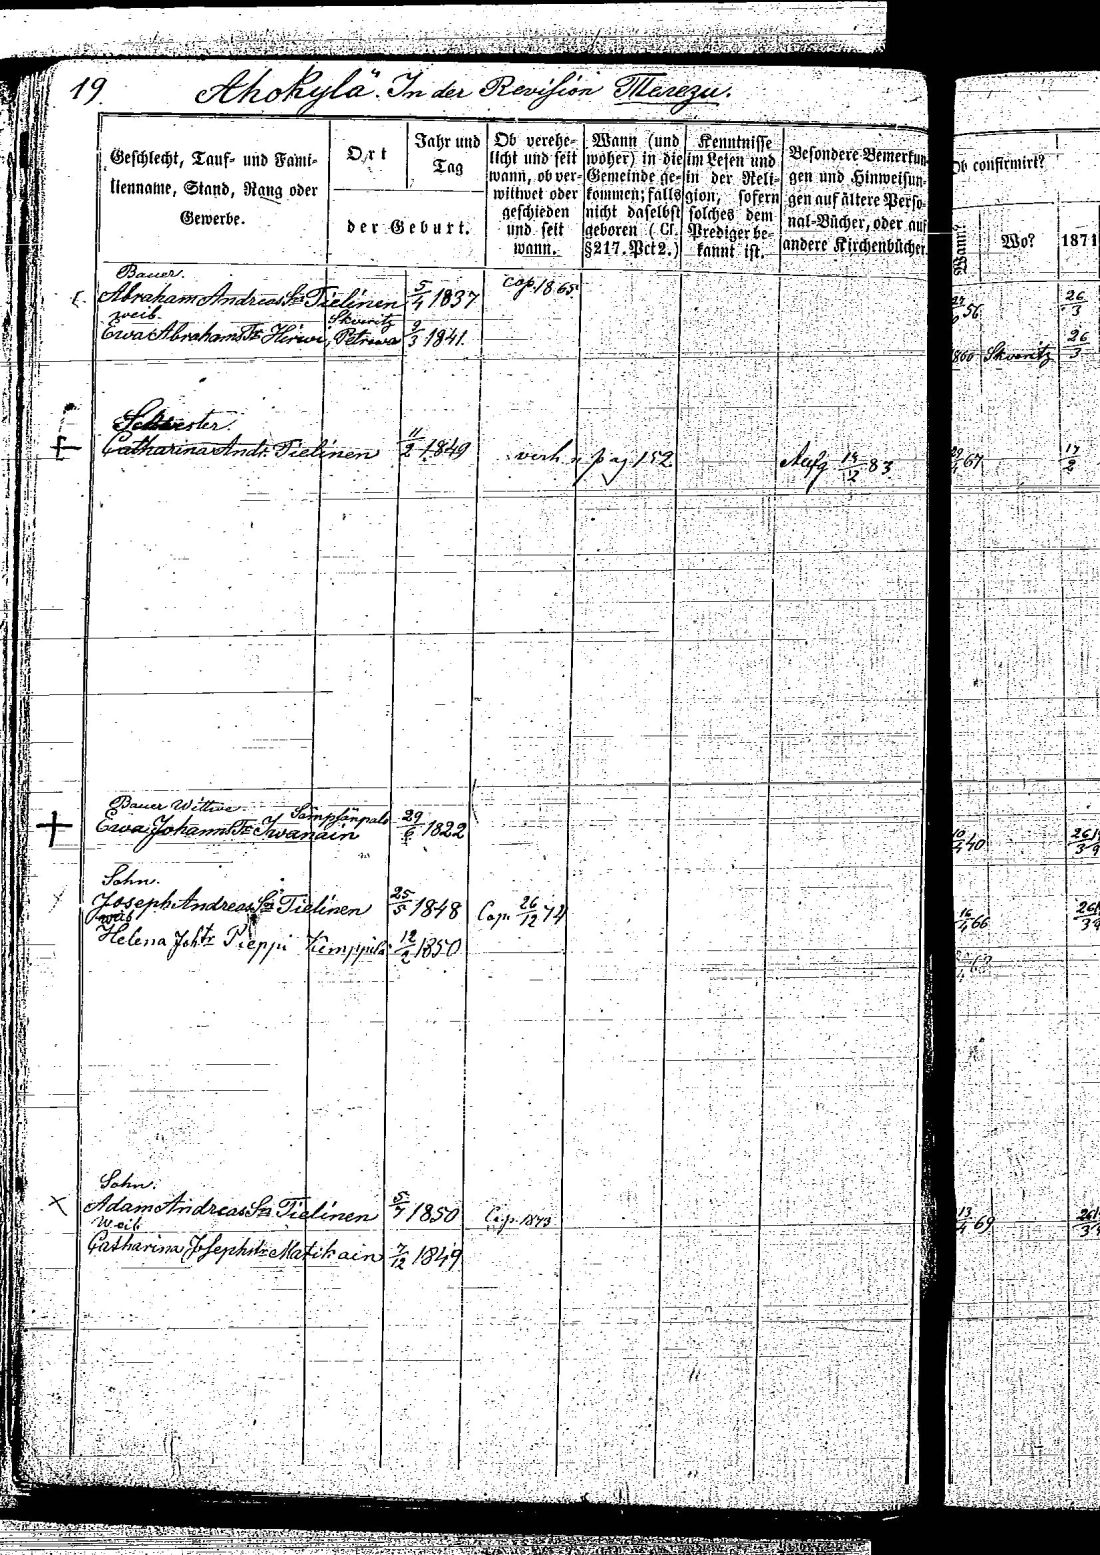 19. Ahokylä. In der Revision Merezu.
Geschlecht, Tauf- und Fami-
lienname, Stand, Rang oder
Gewerbe.
Ort
Jahr und
Tag
der Geburt.
Ob verehe-
licht und seit
wann, ob ver-
wittwet oder
geschieden
und seit
wann.
Wann (und
woher) in die
Gemeinde ge-
kommen; falls
nicht daselbst
geboren (Cf.
§217. Pct 2.)
Kenntnisse
im Lesen und
in der Reli-
gion, sofern
solches dem
Prediger be-
kannt ist.
Besondere Bemerkun-
gen und Hinweisun-
gen auf ältere Perso-
nal-Bücher, oder auf
andere Kirchenbücher.
Ob confirmirt?
Wann?
Wo?
1871
Bauer.
Abraham Andreas Sn Tielinen 5/4 1837 cop. 1865 56 26/3
Weib. Skvoritz
Ewa Abrahams Tr Hirwi, Petrowa 9/3 1841. 1860 Skvoritz 26/3
Schwester.
Catharina Andr. Tielinen 11/2 1849 verh. pag. 152 Aufg 83. 67 17/2
Bauer Wittwe.
Ewa Johanns Tr Iwanain 29/6 1822 40
Sohn.
Joseph Andreas Sn Tielinen 25/5 1848 Cop. 26/12 74 16/4 66
Weib
Helena Joh tr Pieppi Kemppilä 12/2 1850
Sohn.
Adam Andreas Sn Tielinen 5/7 1850 Cop. 1873 13/4 69
Weib
Catharina Josephs tr Matikain 7/12 1849